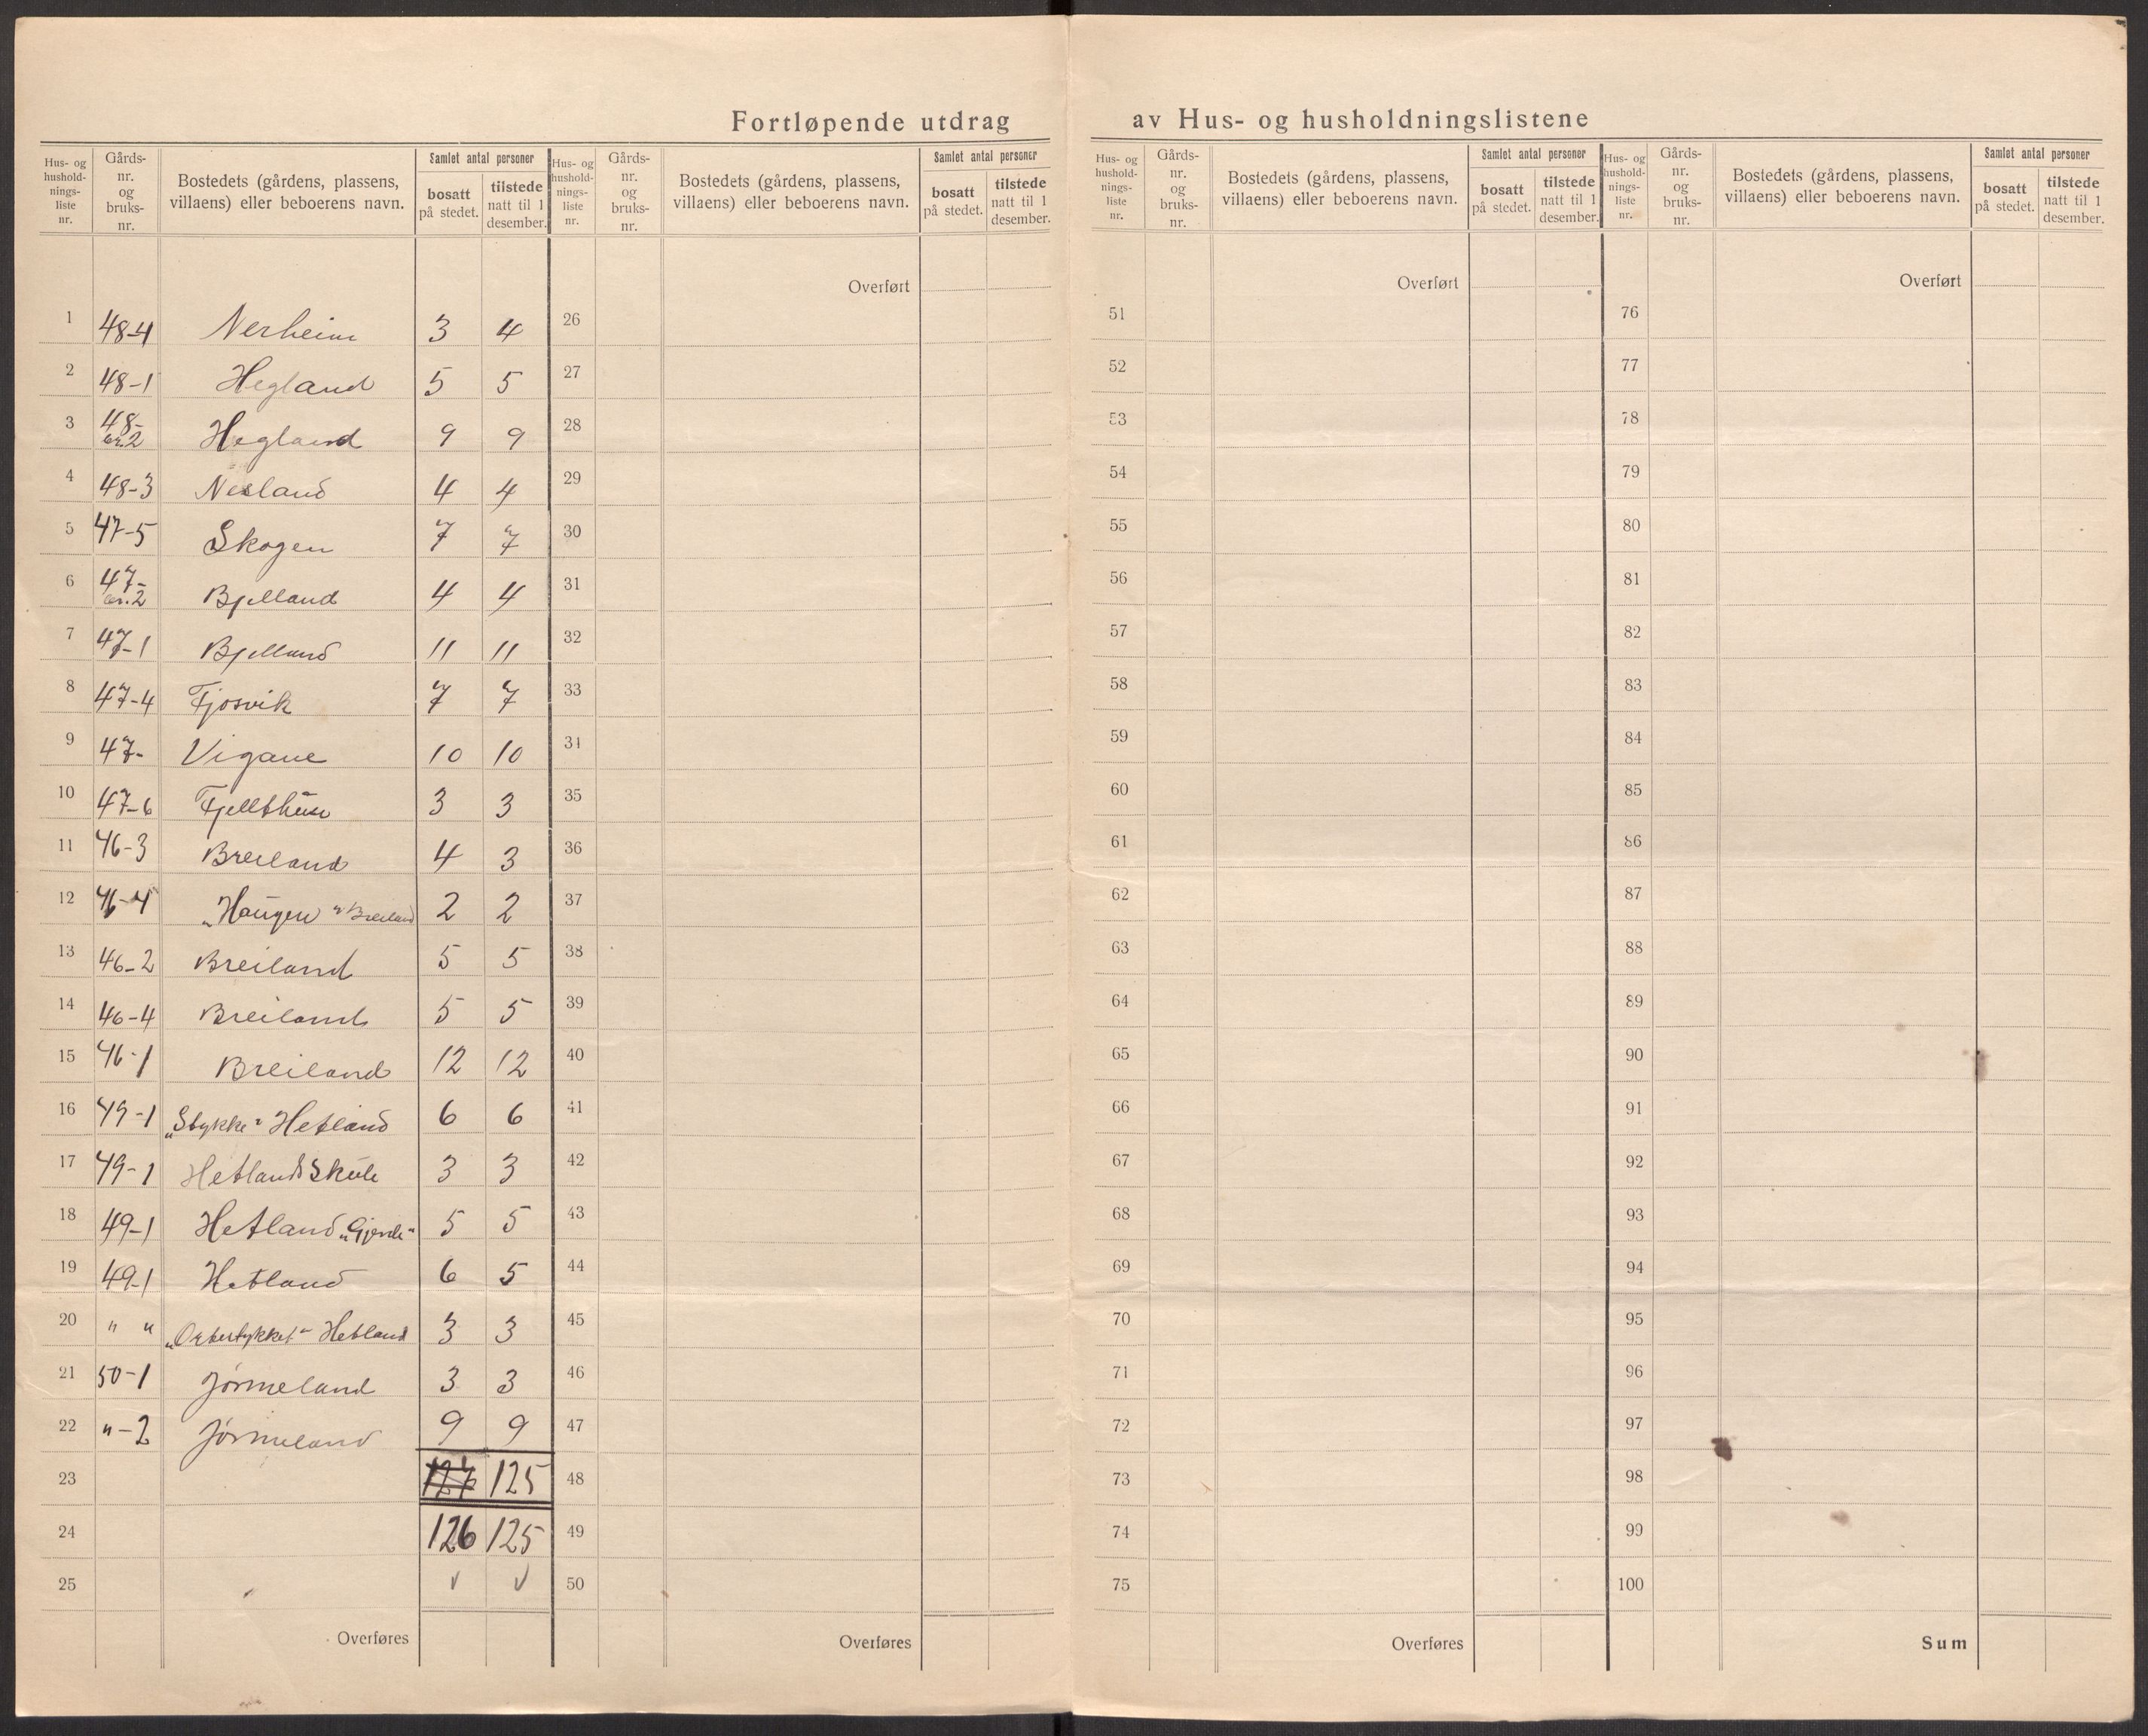 Fortløpende utdrag av Hus- og husholdningslistene
Hus- og hushold-nings-liste nr. Gårds-nr. og bruks-nr. Bostedets (gårdens, plassens, villaens) eller beboerens navn. Samlet antal personer bosatt på stedet. tilstede natt til 1 desember.
Hus- og hushold-nings-liste nr. Gårds-nr. og bruks-nr. Bostedets (gårdens, plassens, villaens) eller beboerens navn. Samlet antal personer bosatt på stedet. tilstede natt til 1 desember.
Hus- og hushold-nings-liste nr. Gårds-nr. og bruks-nr. Bostedets (gårdens, plassens, villaens) eller beboerens navn. Samlet antal personer bosatt på stedet. tilstede natt til 1 desember.
Hus- og hushold-nings-liste nr. Gårds-nr. og bruks-nr. Bostedets (gårdens, plassens, villaens) eller beboerens navn. Samlet antal personer bosatt på stedet. tilstede natt til 1 desember.
Overført Overført Overført
1 48-4 Nerheim 3 4 26 51 76
2 48-1 Hegland 5 5 27 52 77
3 48-br.2 Hegland 9 9 28 53 78
4 48-3 Nesland 4 4 29 54 79
5 47-5 Skogen 7 7 30 55 80
6 47-br.2 Bjelland 4 4 31 56 81
7 47-1 Bjelland 11 11 32 57 82
8 47-4 Fjosvik 7 7 33 58 83
9 47- Vigane 10 10 34 59 84
10 47-6 3 3 35 60 85
11 46-3 Breiland 4 3 36 61 86
12 46-4 „Haugen" Breiland 2 2 37 62 87
13 46-2 Breiland 5 5 38 63 88
14 46-4 Breiland 5 5 39 64 89
15 46-1 Breiland 12 12 40 65 90
16 49-1 „Stykke" Hetland 6 6 41 66 91
17 49-1 Hetland Skule 3 3 42 67 92
18 49-1 Hetland „Gjerde" 5 5 43 68 93
19 49-1 Hetland 6 5 44 69 94
20 " " Hetland 3 3 45 70 95
21 50-1 Jørmeland 3 3 46 71 96
22 " -2 Jørmeland 9 9 47 72 97
23 127 125 48 73 98
24 126 125 49 74 99
25 50 75 100
Overføres Overføres Overføres Sum